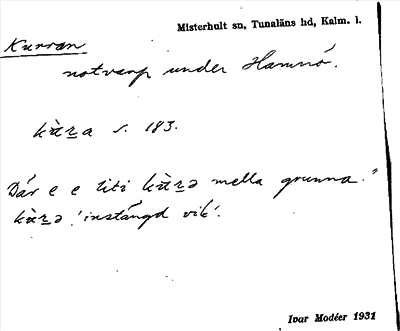 Misterhult sn, Tunaläns hd, Kalm. l.
Kurran
notvarp under Hamnö.
kùꞫa s. 183.
Där e e liti kùꞫə mella grunna."
kùꞫə 'instängd vik'.
Ivar Modéer 1931